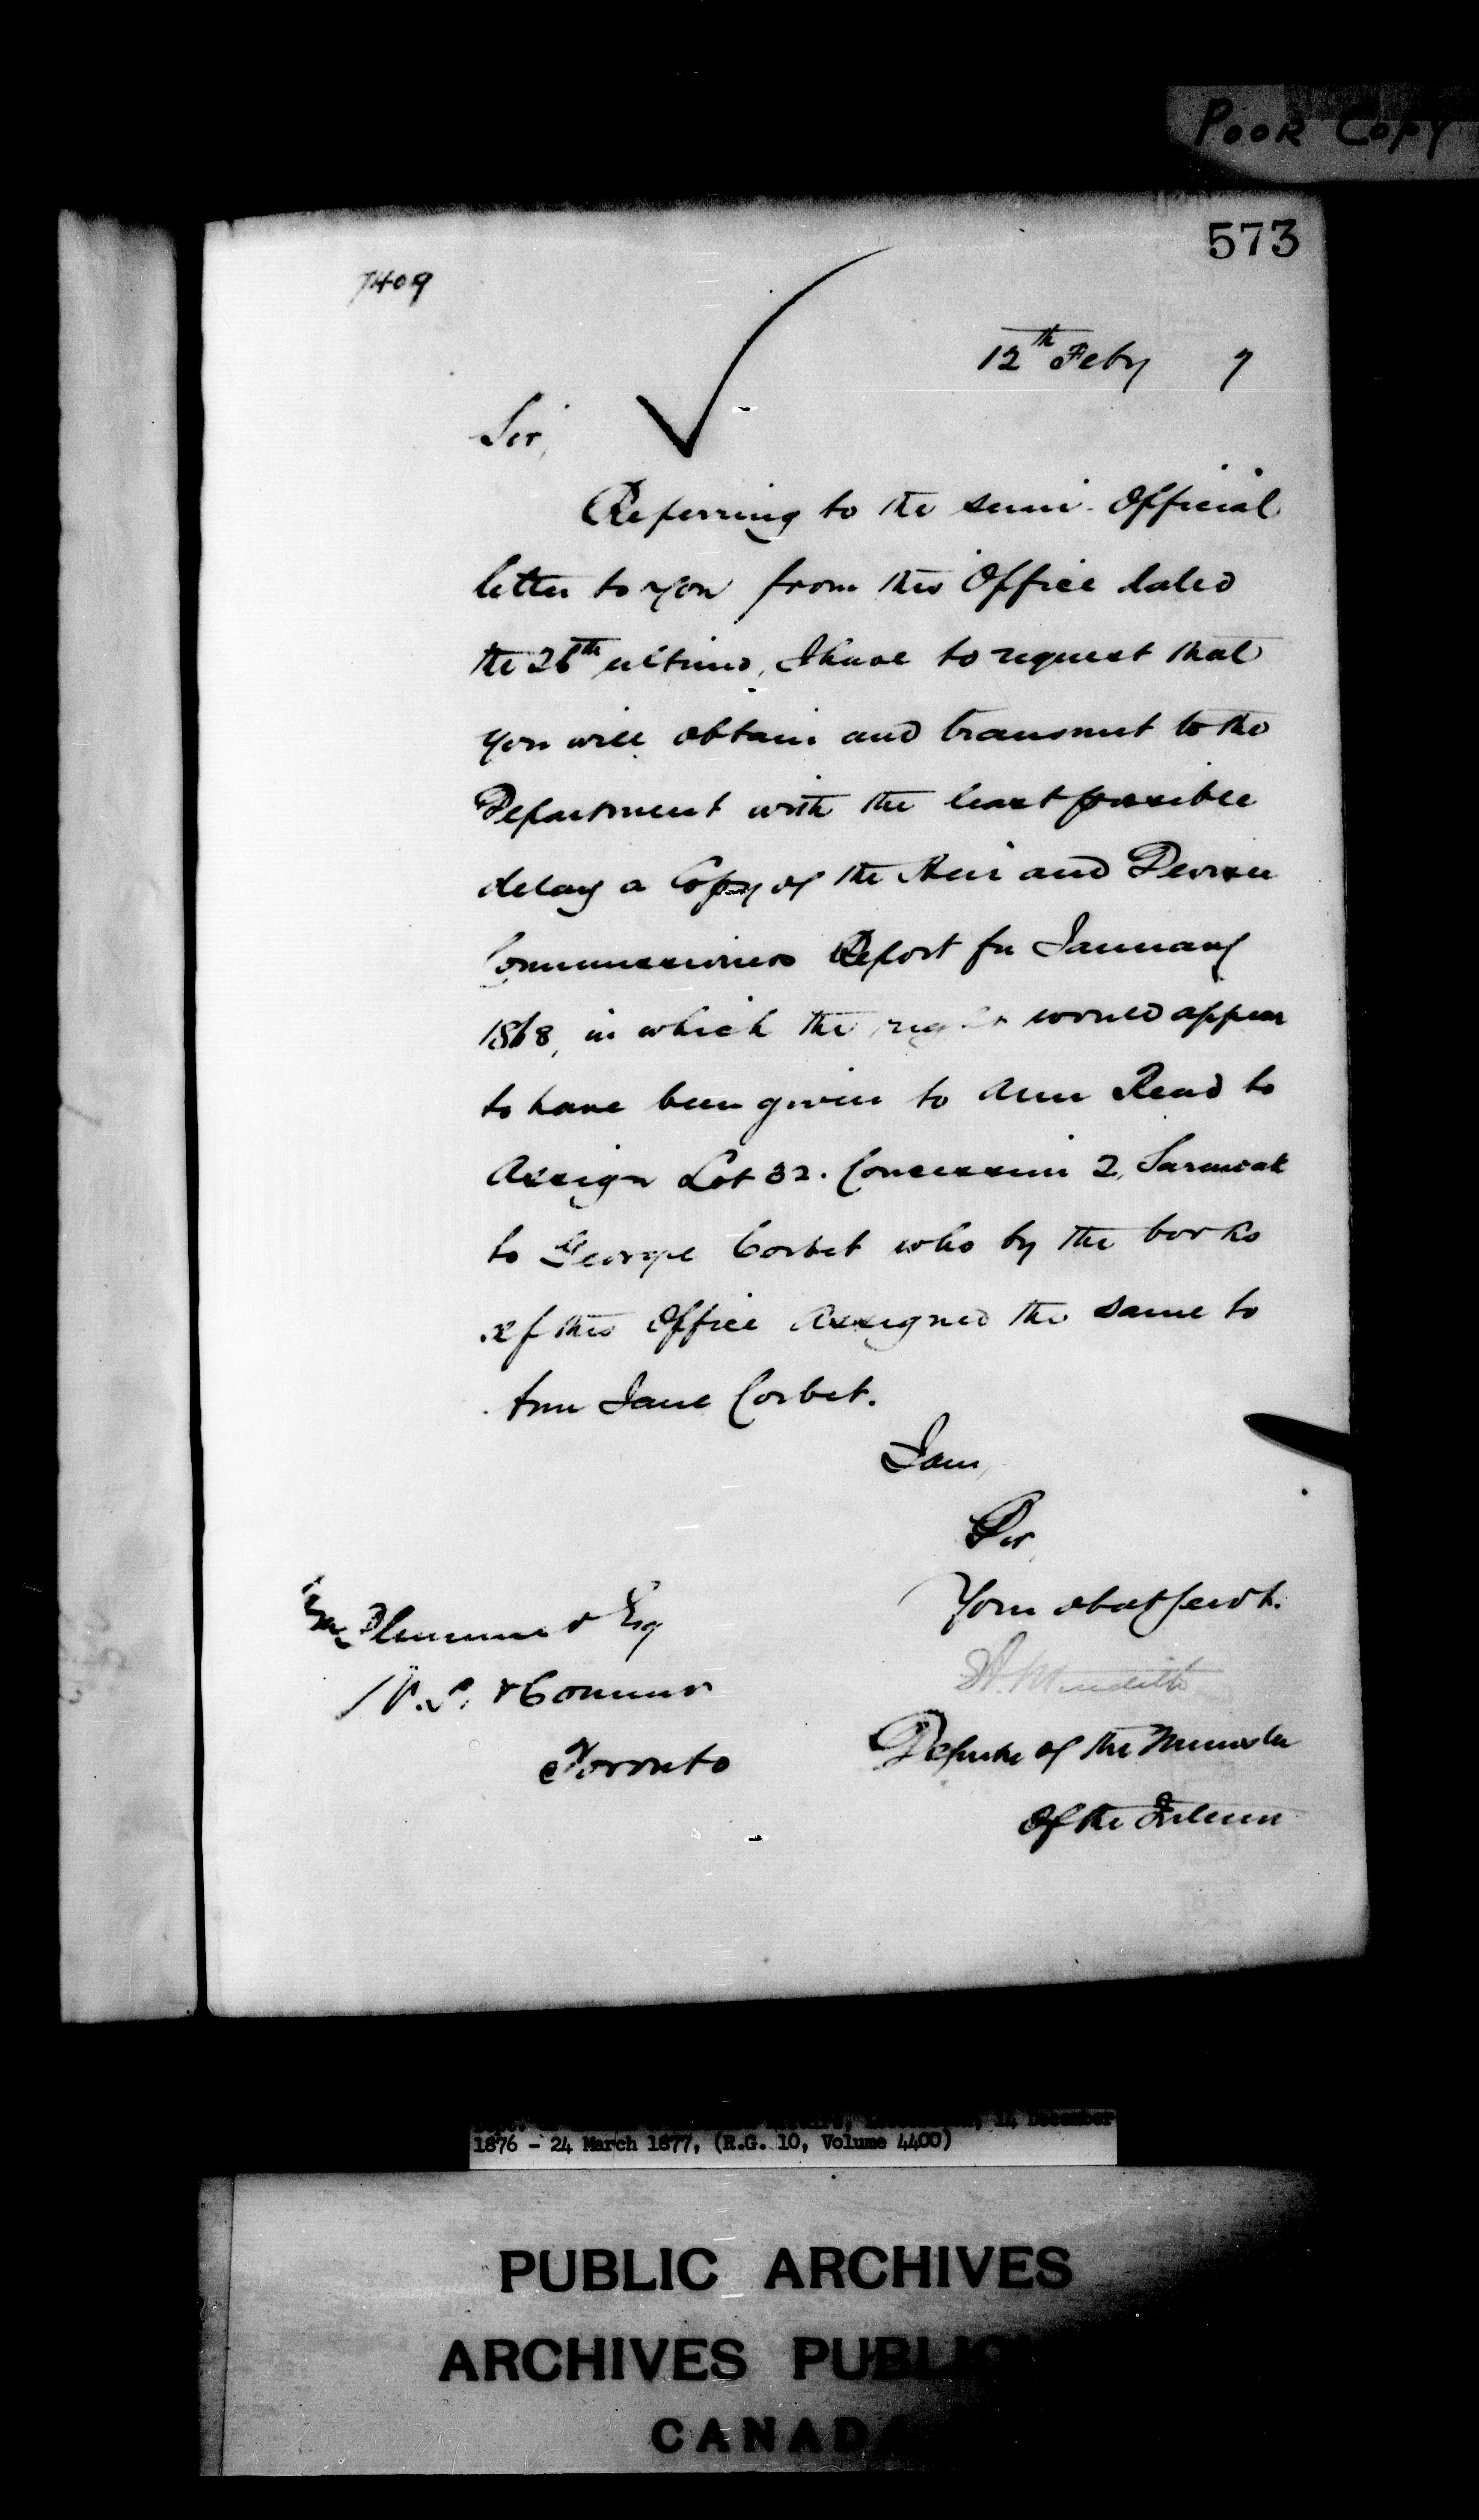 POOR COPY
573
7409
12th Feby 7
Sir,
Referring to the semi-Official
letter to you from this Office dated
the 26th ultimo, I have to request that
you will obtain and transmit to the
Department with the least possible
delay a Copy of the Heir and Devisee
Commissioners Report for January
1868, in which the right would appear
to have been given to Ann Read to
Assign Lot 32. Concession 2, Sarawak
to George Corbet who by the books
of this Office Assigned the same to
Ann Jane Corbet.
I am,
Sir,
Your obdt servt.
Meredith
Deputy of the Minister
of the Interior
Wm Plummer Esq
Toronto
14 December
1876 - 24 March 1877, (R.G. 10, Volume 4400)
PUBLIC ARCHIVES
ARCHIVES PUBLIC
CANADA